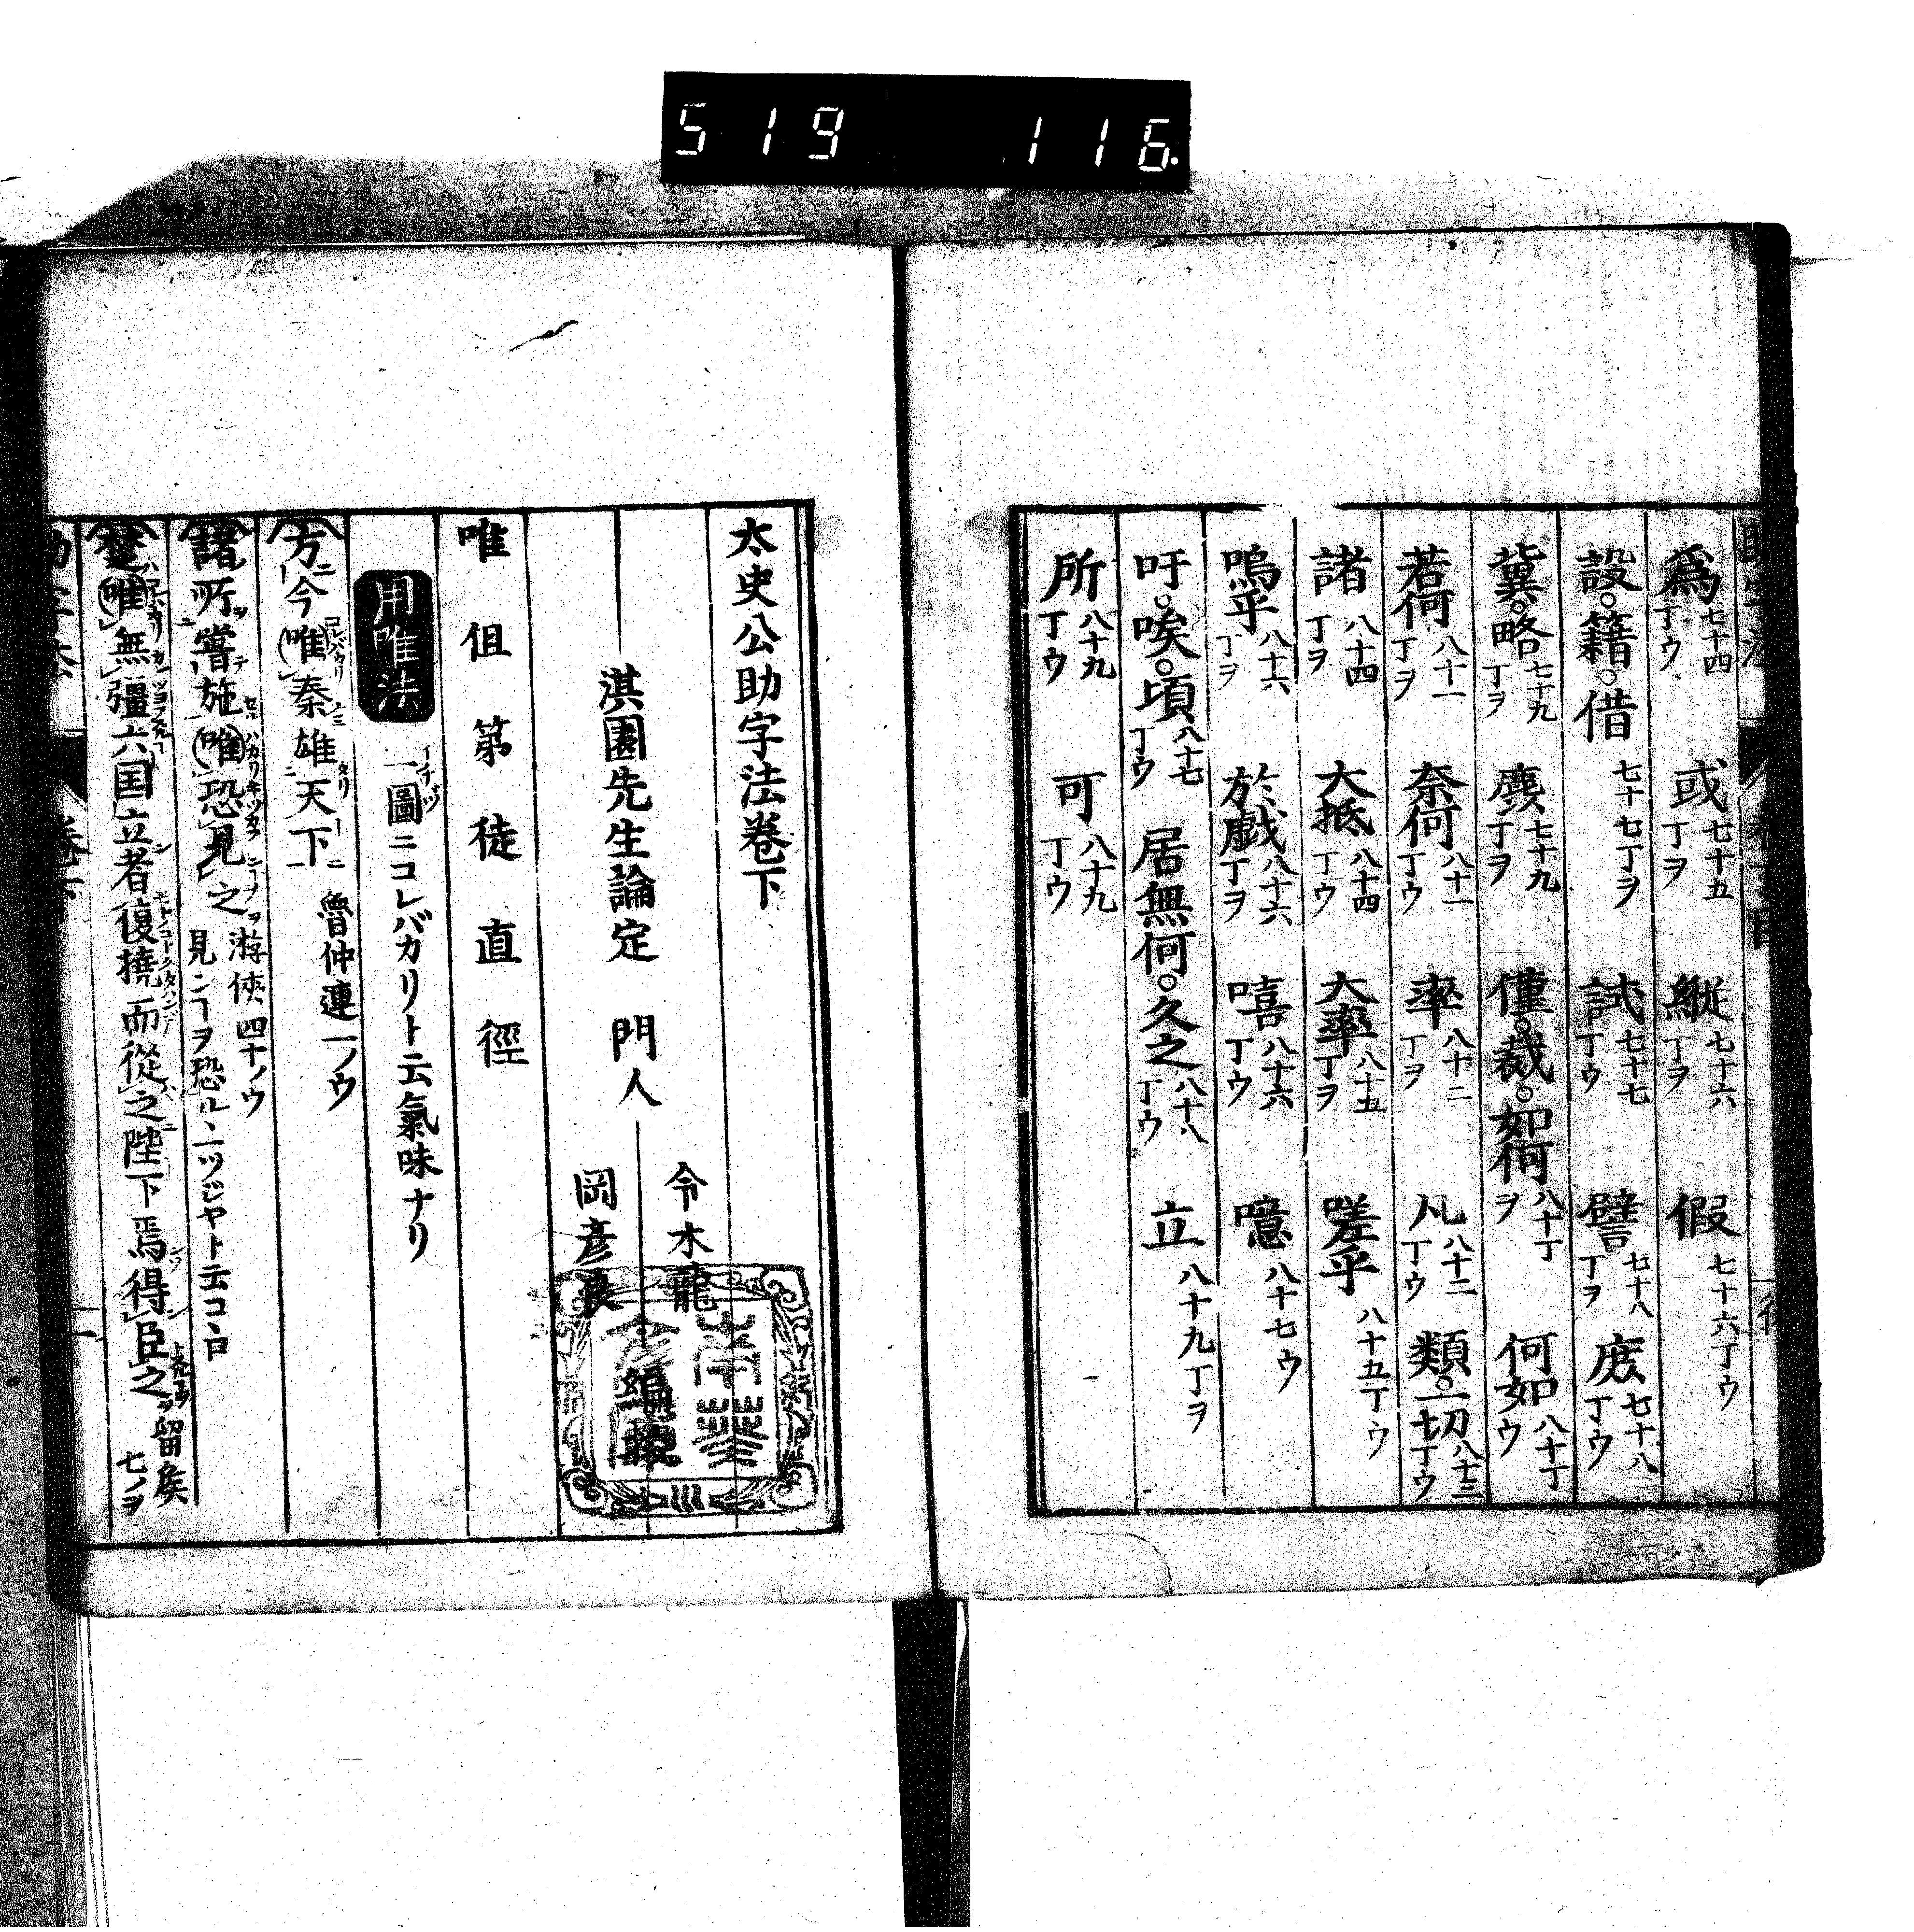 519 116
爲 七十四丁ウ 或 七十五丁ヲ 縦 七十六丁ヲ 假 七十六丁ウ
設。籍。借 七十七丁ヲ 試 七十七丁ウ 譬 七十八丁ヲ 庶 七十八丁ウ
冀。略 七十九丁ヲ 七十九丁ヲ 僅。裁。如何 八十丁ヲ 何如 八十丁ウ
若何 八十一丁ヲ 奈何 八十一丁ウ 率 八十二丁ヲ 凡 八十二丁ウ 類。一切 八十三丁ウ
諸 八十四丁ヲ 大抵 八十四丁ウ 大率 八十五丁ヲ 嗟乎 八十五丁ウ
嗚乎 八十六丁ヲ 於戲 八十六丁ヲ 嘻 八十六丁ウ 噫 八十七ウ
吁。唉。頃 八十七丁ウ 居無何。久之 八十八丁ウ 立 八十九丁ヲ
所 八十九丁ウ 可 八十九丁ウ
太史公助字法卷下
淇園先生論定 門人 令木龍 岡彦良 編輯
唯 但 第 徒 直 徑
用唯法 一圖ニコレバカリト云氣味ナリ
方今唯秦雄天下 魯仲連一ノウ
諸所嘗施唯恐見之 游俠四十ノウ 見ンヿヲ恐ル、一ツジヤト云コヽロ
楚唯無彊六国立者復撓而從之陛下焉得臣之 留矦七ノヲ